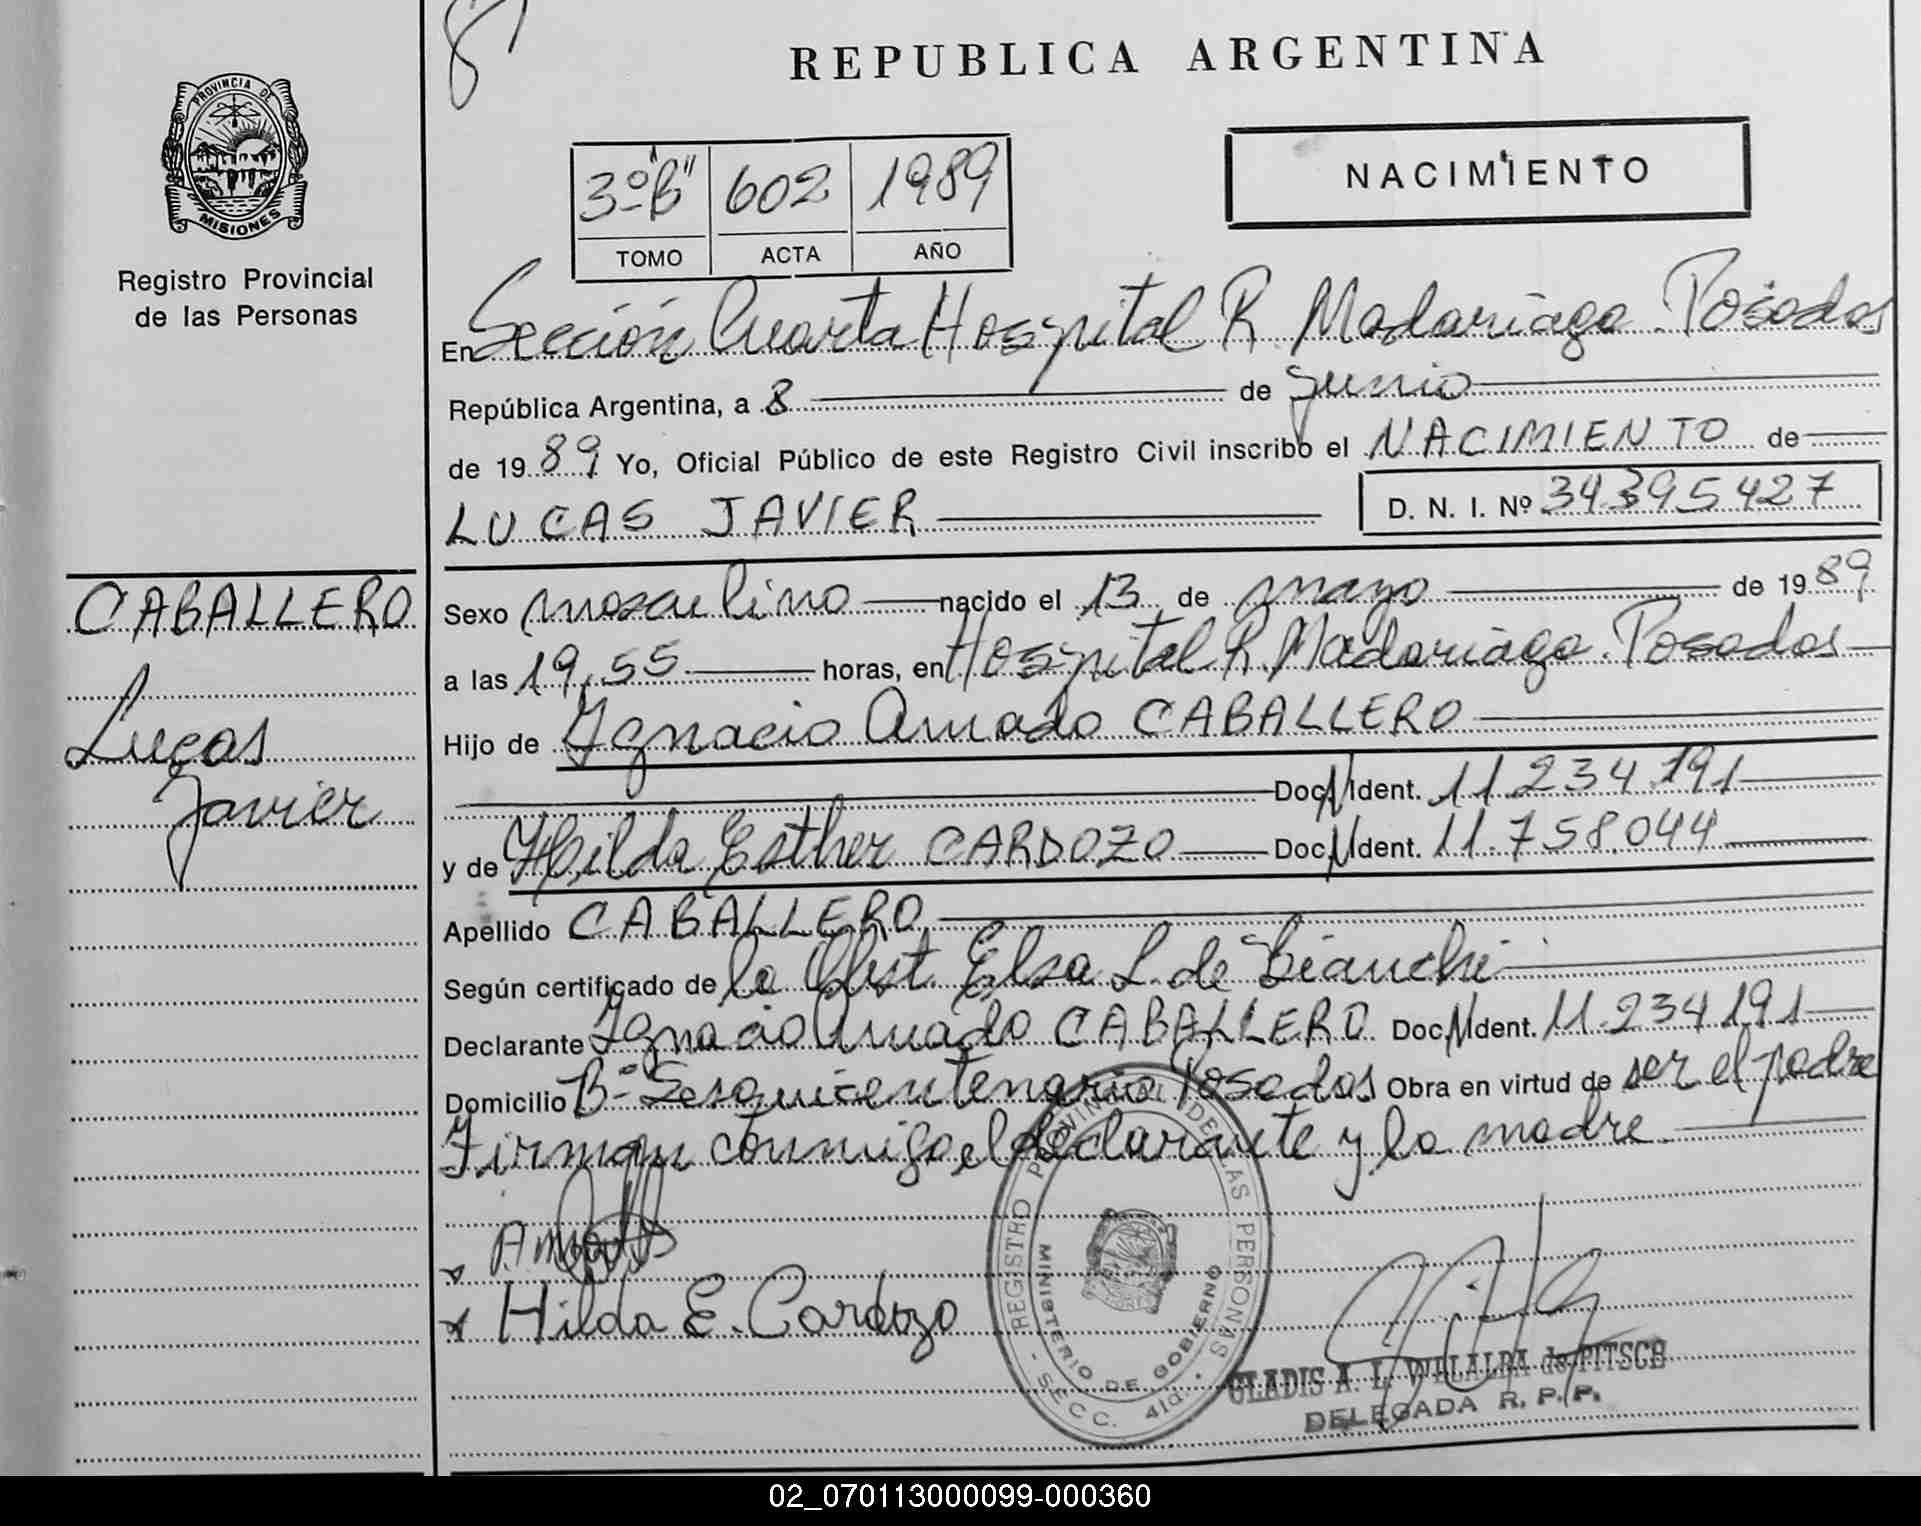 REPUBLICA ARGENTINA
PROVINCIA DE
MISIONES
Registro Provincial
de las Personas
3º "B" 602 1989
TOMO ACTA AÑO
NACIMIENTO
En Sección Cuarta Hospital R. Madariaga. Posadas
República Argentina, a 8 de Junio
de 1989 Yo, Oficial Público de este Registro Civil inscribo el NACIMIENTO de
LUCAS JAVIER D. N. I. Nº 34395427
CABALLERO
Lucas
Javier
Sexo masculino nacido el 13 de mayo de 1989
a las 19,55 horas, en Hospital R. Madariaga. Posadas
Hijo de Ignacio Amado CABALLERO
Doc. N Ident. 11.234.191
y de Hilda Esther CARDOZO Doc. N Ident. 11.758.044
Apellido CABALLERO
Según certificado de la Obst. Elsa L. de Bianchi
Declarante Ignacio Amado CABALLERO. Doc. N Ident. 11.234.191
Domicilio Bº Sesquicentenario Posadas Obra en virtud de ser el padre
Firman conmigo el declarante y la madre.
Hilda E. Cardozo
REGISTRO PROVINCIAL DE LAS PERSONAS
MINISTERIO DE GOBIERNO
- SECC. 4ta. -
GLADIS A. L. VILLALBA de PITSCH
DELEGADA R. P. P.
02_070113000099-000360